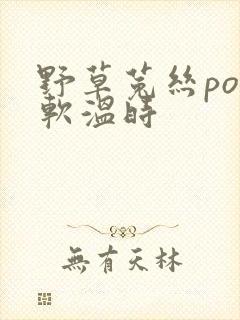 野草菟絲po
軟溫時
無有天林